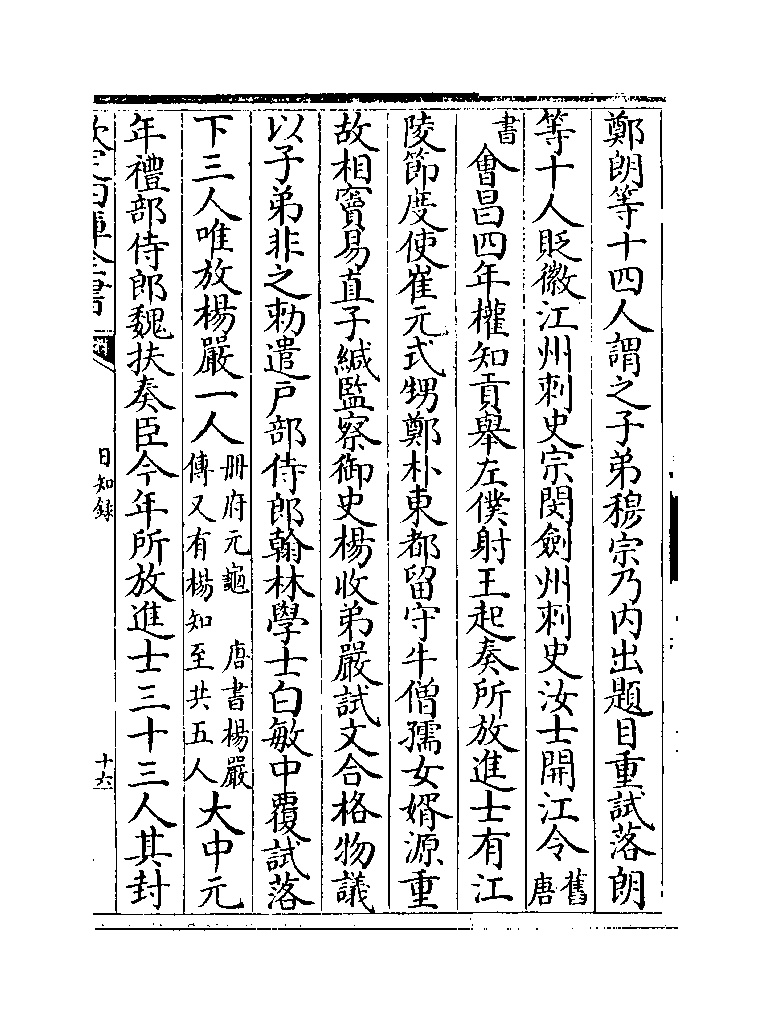 鄭朗等十四人謂之子弟穆宗乃内出題目重試落朗
等十人貶徽江州刺史宗閔劍州刺史汝士開江令舊唐
書會昌四年權知貢舉左僕射王起奏所放進士有江
陵節度使崔元式甥鄭朴東都留守牛僧孺女婿源重
故相竇易直子緘監察御史楊收弟嚴試文合格物議
以子弟非之勅遣戸部侍郎翰林學士白敏中覆試落
下三人唯放楊嚴一人册府元龜 唐書楊嚴傳又有楊知至共五人大中元
年禮部侍郎魏扶奏臣今年所放進士三十三人其封
欽定四庫全書
日知録
十六